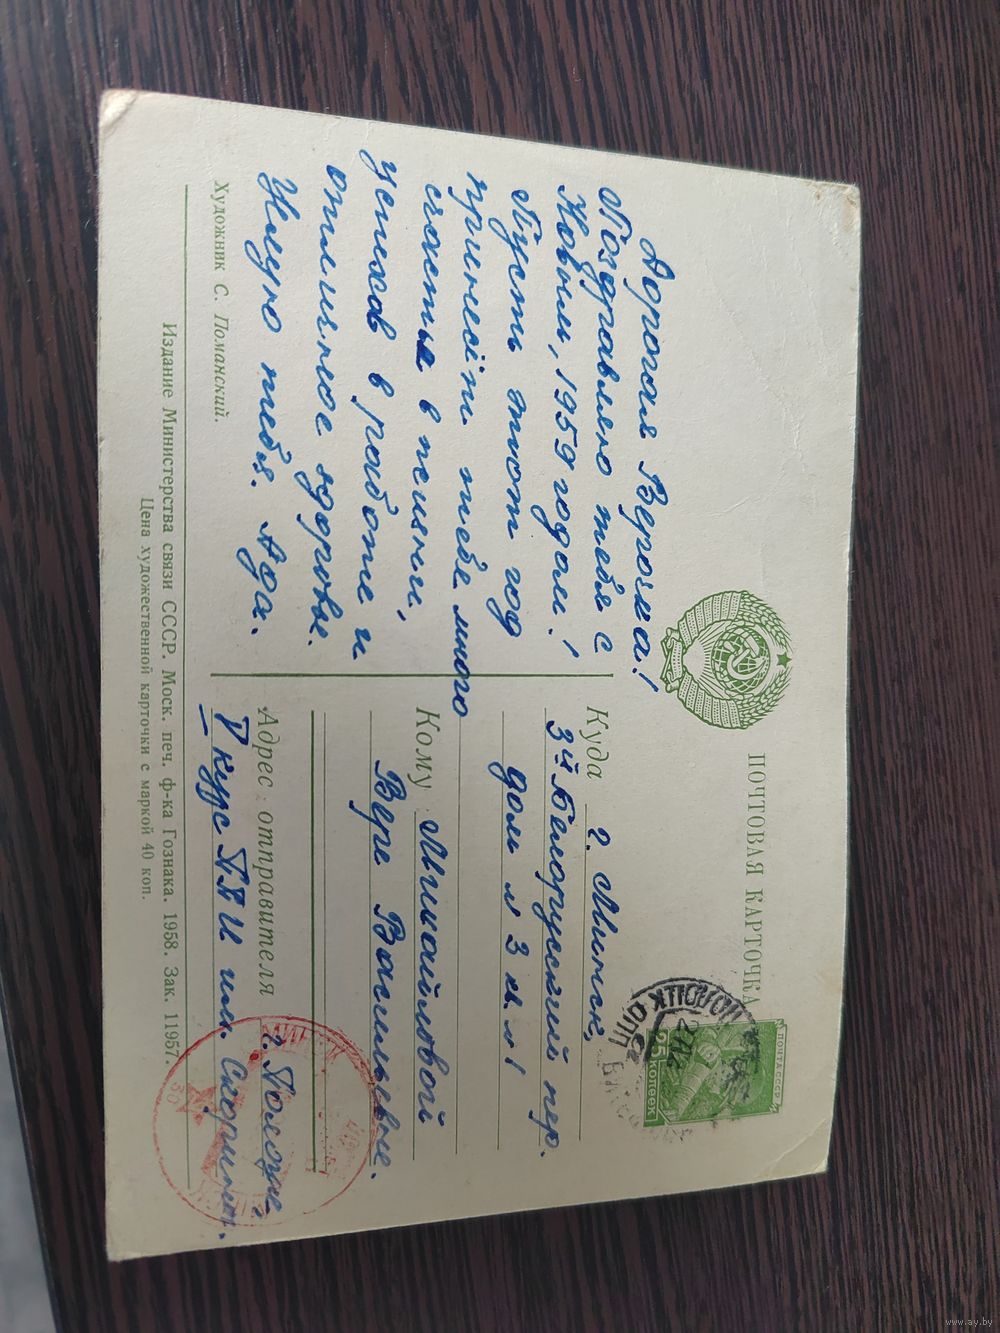 ПОЧТОВАЯ КАРТОЧКА
ПОЧТА СССР
25 КОПЕЕК
Дорогая Верочка!
Поздравляю тебя с
Новым, 1959 годом!
Пусть этот год
принесёт тебе много
счастья в жизни,
успехов в работе и
отличное здоровье.
Целую тебя. Ада.
Куда г. Минск,
3ий Белорусский пер.
дом № 3 кв. № 1
Кому Михайловой
Вере Васильевне.
Адрес отправителя г. Полоцк,
V курс им. Скорины.
Художник С. Поманский.
Издание Министерства связи СССР. Моск. печ. ф-ка Гознака. 1958. Зак. 11957.
Цена художественной карточки с маркой 40 коп.
www.ay.by